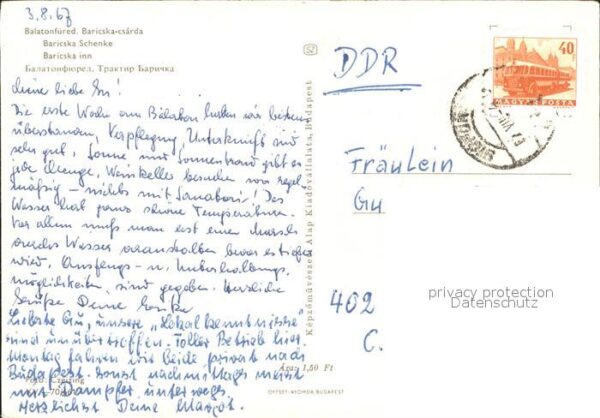 3.8.67
Balatonfüred. Baricska-csárda
Baricska Schenke
Baricska inn
Балатонфюред. Трактир Баричка
DDR
40
MAGYAR POSTA
Fräulein
Gu
402
C.
privacy protection
Datenschutz
Meine liebe Gu!
Die erste Woche am Balaton haben wir bestens
überstanden, Verpflegung, Unterkunft sind
sehr gut, Sonne und Sonnenbrand gibt es
jede Menge, Weinkeller besuchen wir regel-
mäßig – nichts mit Das
Wasser hat ganz schöne Temperaturen.
Vor allem muß man erst einen Marsch
durchs Wasser bevor es tiefer
wird. Ausflugs- u. Unterhaltungs-
möglichkeiten sind gegeben. Herzliche
Grüße Deine
Liebste Gu, unsere "Lokalkenntnisse"
sind unübertroffen. Toller Betrieb hier.
Montag fahren wir beide privat nach
Budapest. Sonst nachmittags meist
mit Dampfer unterwegs
Herzlichst Deine Margot.
Képzőművészeti Alap Kiadóvállalata, Budapest
Ára: 1,50 Ft
OFFSET-NYOMDA BUDAPEST